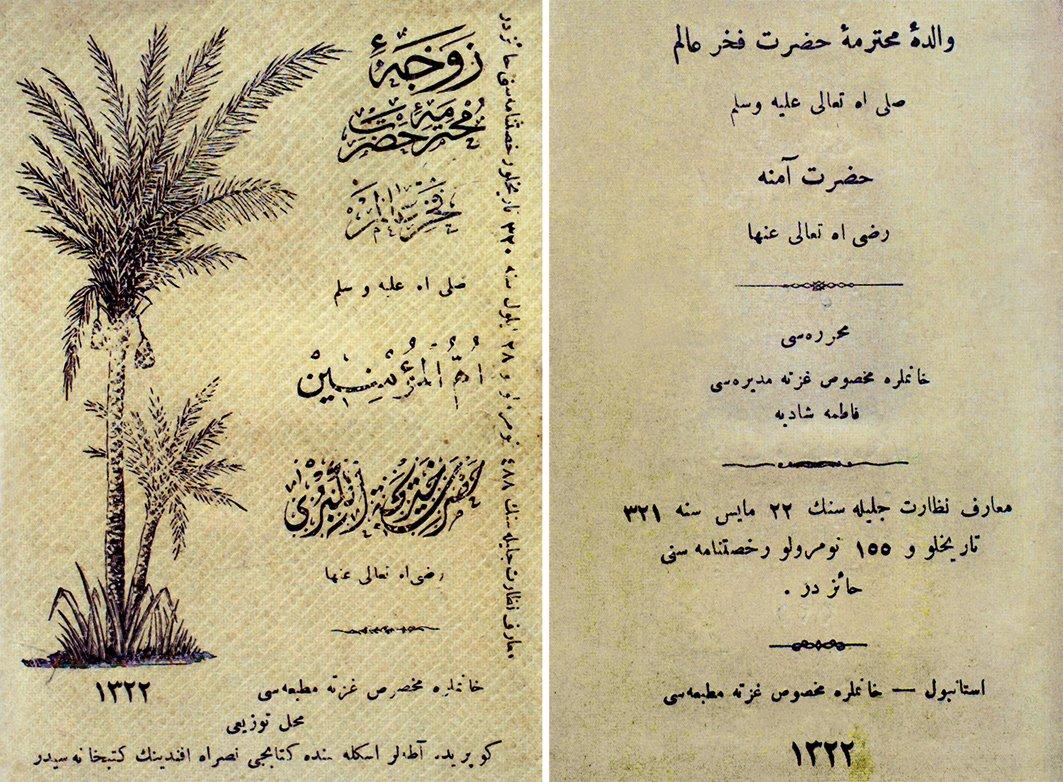 زوجهٔ
محترمهٔ حضرت
فخر عالم
صلی الله علیه و سلم
اُمُّ الْمُؤْمِنِین
حضرت خدیجة الکبری
رضی الله تعالی عنها
خانملره مخصوص غزته مطبعه‌سی
١٣٢٢
محل توزیعی
کوپریده آطه‌لر اسکله سنده کتابجی نصرالله افندینك کتبخانه سیدر
معارف نظارت جلیله سنك ٤٨٨ نومرولو و ٢٨ ایلول سنه ٣٢٠ تاریخلو رخصتنامه سنی حائزدر
والدهٔ محترمهٔ حضرت فخر عالم
صلی الله تعالی علیه وسلم
حضرت آمنه
رضی الله تعالی عنها
محرره‌سی
خانملره مخصوص غزته مدیره‌سی
فاطمه شادیه
معارف نظارت جلیله سنك ٢٢ مایس سنه ٣٢١
تاریخلو و ١٥٥ نومرولو رخصتنامه سنی
حائز در .
استانبول — خانملره مخصوص غزته مطبعه‌سی
١٣٢٢